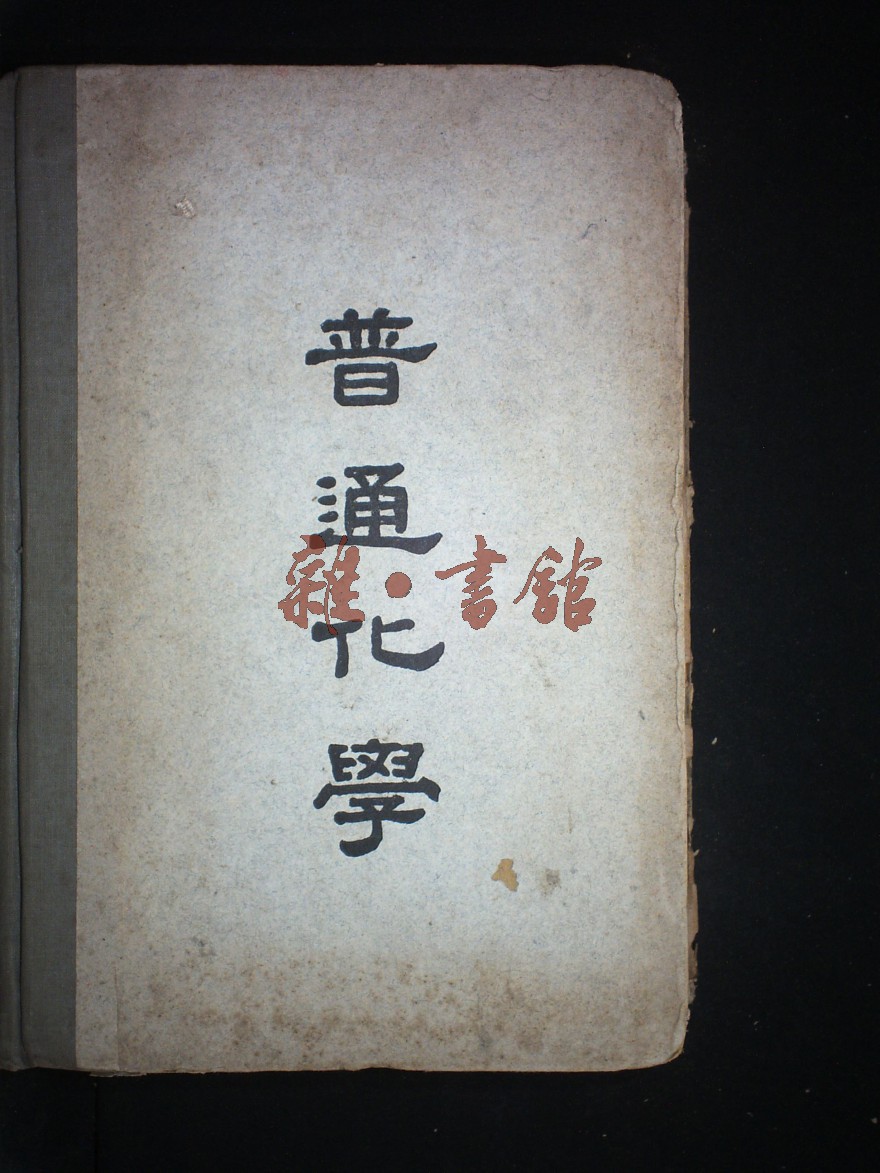 普通化學
雜·書館